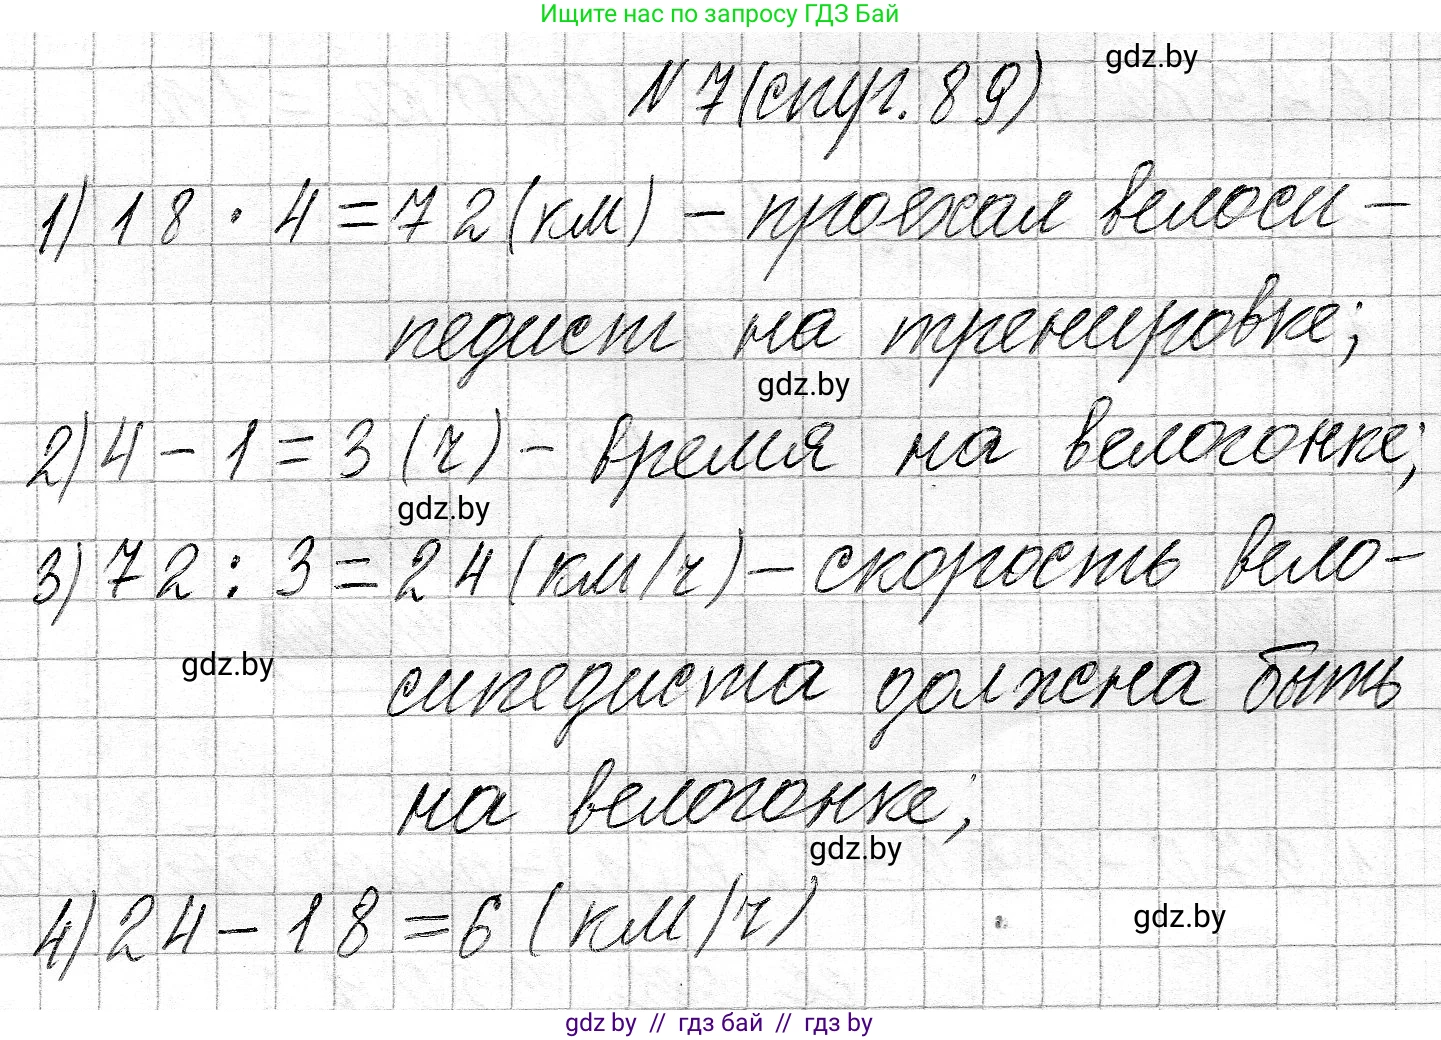 Ищите нас по запросу ГДЗ Бай
gdz.by
N 7 (стр. 89)
1) 18 · 4 = 72 (км) – проехал велоси-
педист на тренировке;
gdz.by
2) 4 – 1 = 3 (ч) – время на велогонке;
gdz.by
3) 72 : 3 = 24 (км/ч) – скорость вело-
gdz.by
сипедиста должна быть
на велогонке;
gdz.by
4) 24 – 18 = 6 (км/ч)
gdz.by
gdz by // гдз бай // гдз by